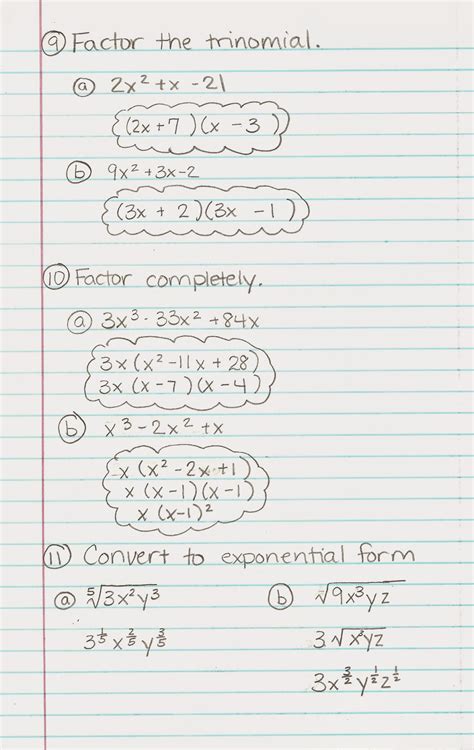 ⑨ Factor the trinomial.
ⓐ 2x² + x - 21
(2x + 7)(x - 3)
ⓑ 9x² + 3x - 2
(3x + 2)(3x - 1)
⑩ Factor completely.
ⓐ 3x³ - 33x² + 84x
3x(x² - 11x + 28)
3x(x - 7)(x - 4)
ⓑ x³ - 2x² + x
x(x² - 2x + 1)
x(x - 1)(x - 1)
x(x-1)²
⑪ Convert to exponential form
ⓐ ⁵√(3x²y³) ⓑ √(9x³yz)
3^(1/5) x^(2/5) y^(3/5) 3√(x³yz)
3x^(3/2) y^(1/2) z^(1/2)